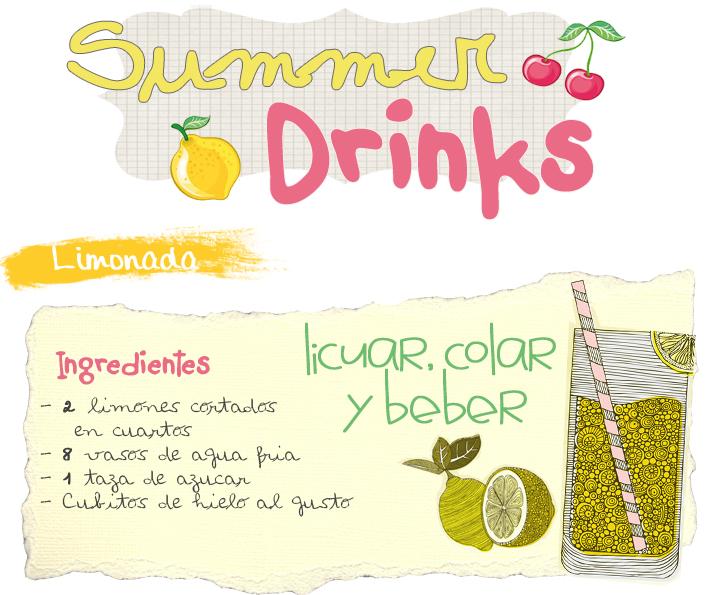 Summer
Drinks
Limonada
Ingredientes
licuar, colar
y beber
- 2 limones cortados
en cuartos
- 8 vasos de agua fria
- 1 taza de azucar
- Cubitos de hielo al gusto